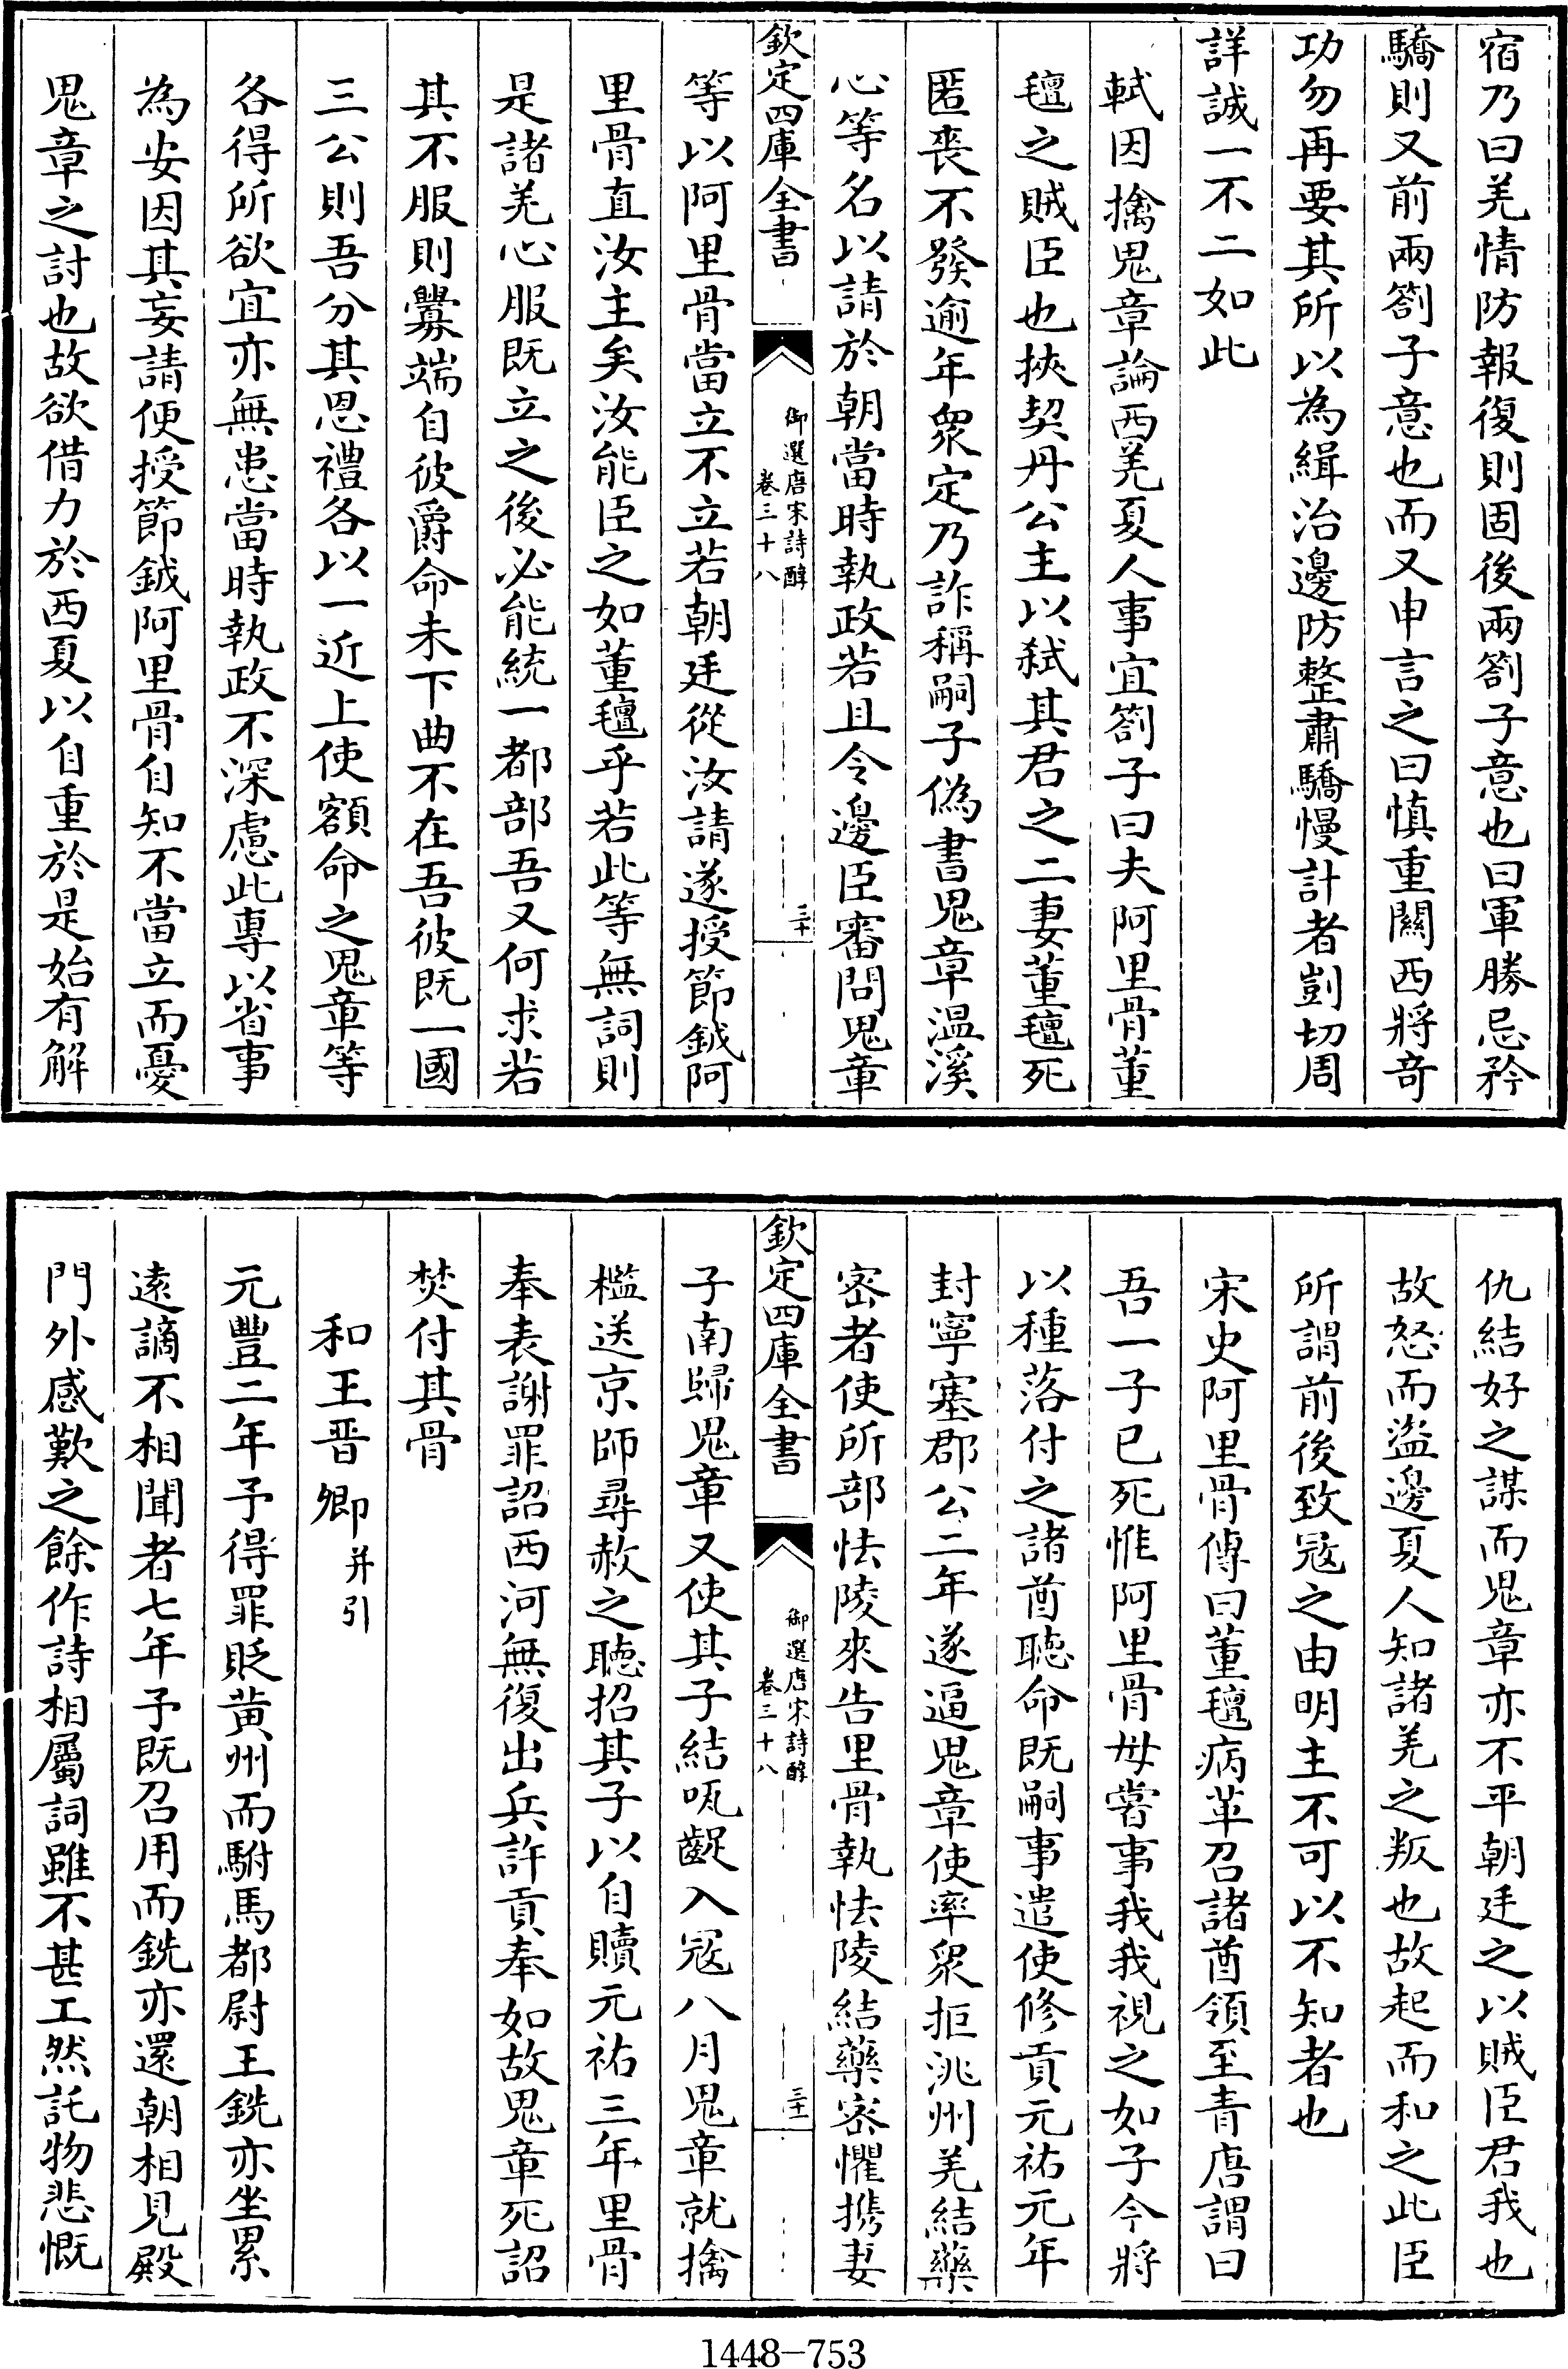 宿乃曰羌情防報復則固後兩劄子意也曰軍勝忌矜
驕則又前兩劄子意也而又申言之曰慎重關西將奇
功勿再要其所以為緝治邊防整肅驕慢計者剴切周
詳誠一不二如此
軾因擒鬼章論西羌夏人事宜劄子曰夫阿里骨董
氊之賊臣也挾契丹公主以弑其君之二妻董氊死
匿喪不發逾年衆定乃詐稱嗣子偽書鬼章温溪
心等名以請於朝當時執政若且令邊臣審問鬼章
欽定四庫全書
御選唐宋詩醇
卷三十八
三十
等以阿里骨當立不立若朝廷從汝請遂授節鉞阿
里骨直汝主矣汝能臣之如董氊乎若此等無詞則
是諸羌心服既立之後必能統一都部吾又何求若
其不服則釁端自彼爵命未下曲不在吾彼既一國
三公則吾分其恩禮各以一近上使額命之鬼章等
各得所欲宜亦無患當時執政不深慮此專以省事
為安因其妄請便授節鉞阿里骨自知不當立而憂
鬼章之討也故欲借力於西夏以自重於是始有解
仇結好之謀而鬼章亦不平朝廷之以賊臣君我也
故怒而盜邊夏人知諸羌之叛也故起而和之此臣
所謂前後致寇之由明主不可以不知者也
宋史阿里骨傳曰董氊病革召諸酋領至青唐謂曰
吾一子已死惟阿里骨母嘗事我我視之如子今將
以種落付之諸酋聽命既嗣事遣使修貢元祐元年
封寧塞郡公二年遂逼鬼章使率衆拒洮州羌結藥
密者使所部怯陵來告里骨執怯陵結藥密懼携妻
欽定四庫全書
御選唐宋詩醇
卷三十八
三十一
子南歸鬼章又使其子結㖫齪入寇八月鬼章就擒
檻送京師尋赦之聽招其子以自贖元祐三年里骨
奉表謝罪詔西河無復出兵許貢奉如故鬼章死詔
焚付其骨
和王晋卿并引
元豐二年予得罪貶黄州而駙馬都尉王銑亦坐累
逺謫不相聞者七年予既召用而銑亦還朝相見殿
門外感歎之餘作詩相屬詞雖不甚工然託物悲慨
1448-753